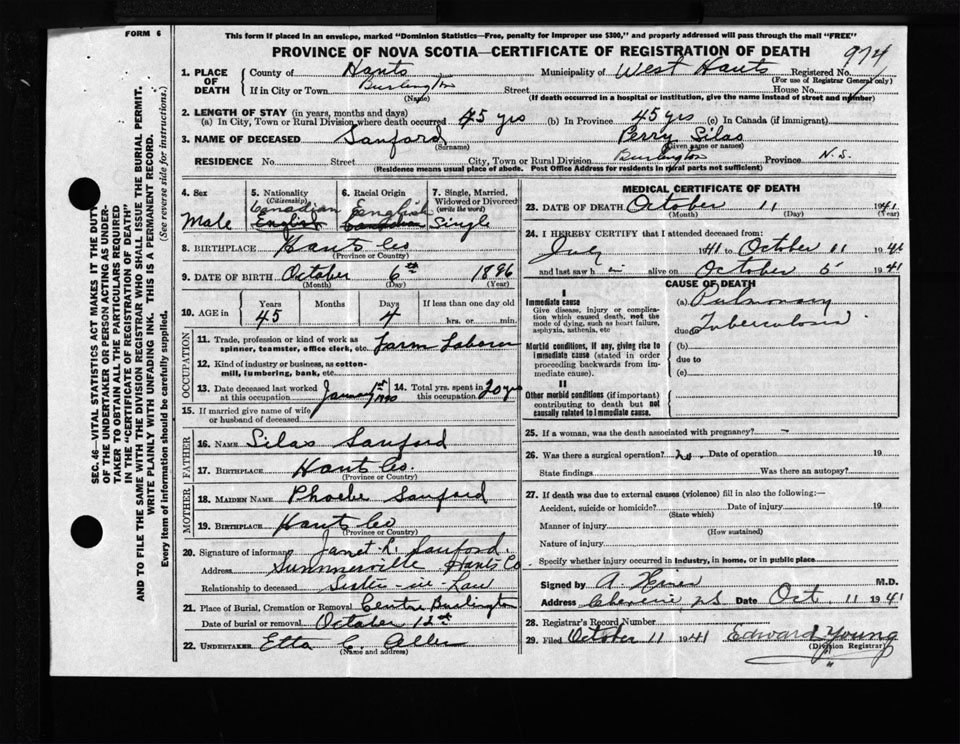 FORM 6
This form if placed in an envelope, marked "Dominion Statistics—Free, penalty for improper use $300," and properly addressed will pass through the mail "FREE"
PROVINCE OF NOVA SCOTIA—CERTIFICATE OF REGISTRATION OF DEATH
974
1. PLACE OF DEATH
County of Hants Municipality of West Hants Registered No.
(For use of Registrar General only)
If in City or Town Burlington Street House No.
(Name) (If death occurred in a hospital or institution, give the name instead of street and number)
2. LENGTH OF STAY (in years, months and days)
(a) In City, Town or Rural Division where death occurred 45 yrs (b) In Province 45 yrs (c) In Canada (if immigrant)
3. NAME OF DECEASED Sanford Perry Silas
(Surname) (Given name or names)
RESIDENCE No. Street City, Town or Rural Division Burlington Province N.S.
(Residence means usual place of abode. Post Office Address for residents in rural parts not sufficient)
4. Sex Male
5. Nationality (Citizenship) Canadian English
6. Racial Origin English Canadian
7. Single, Married, Widowed or Divorced (write the word) Single
8. BIRTHPLACE Hants Co
(Province or Country)
9. DATE OF BIRTH October 6th 1896
(Month) (Day) (Year)
10. AGE in Years 45 Months Days 4 If less than one day old hrs. or min.
OCCUPATION
11. Trade, profession or kind of work as spinner, teamster, office clerk, etc. Farm Laborer
12. Kind of industry or business, as cotton-mill, lumbering, bank, etc.
13. Date deceased last worked at this occupation January 1st 1940
14. Total yrs. spent in this occupation 20 yrs
15. If married give name of wife or husband of deceased
FATHER
16. NAME Silas Sanford
17. BIRTHPLACE Hants Co.
(Province or Country)
MOTHER
18. MAIDEN NAME Phoebe Sanford
19. BIRTHPLACE Hants Co
(Province or Country)
20. Signature of informant Janet L. Sanford.
Address Summerville Hants Co
Relationship to deceased Sister-in-Law
21. Place of Burial, Cremation or Removal Centre Burlington
Date of burial or removal October 12th
22. UNDERTAKER Etta C. Allen
(Name and address)
MEDICAL CERTIFICATE OF DEATH
23. DATE OF DEATH October 11 1941
(Month) (Day) (Year)
24. I HEREBY CERTIFY that I attended deceased from:
July 1941 to October 11 1941
and last saw h im alive on October 5 1941
CAUSE OF DEATH
I
Immediate cause
Give disease, injury or complication which caused death, not the mode of dying, such as heart failure, asphyxia, asthenia, etc
(a) Pulmonary
due to Tuberculosis
Morbid conditions, if any, giving rise to immediate cause (stated in order proceeding backwards from immediate cause).
(b)
due to
(c)
II
Other morbid conditions (if important) contributing to death but not causally related to immediate cause.
25. If a woman, was the death associated with pregnancy? –
26. Was there a surgical operation? no. Date of operation 19
State findings Was there an autopsy?
27. If death was due to external causes (violence) fill in also the following:—
Accident, suicide or homicide? Date of injury 19
(State which)
Manner of injury
(How sustained)
Nature of injury
Specify whether injury occurred in industry, in home, or in public place
Signed by A. M.D.
Address Cheverie, N.S Date Oct. 11 1941
28. Registrar's Record Number
29. Filed October 11 1941 Edward Young
(Division Registrar)
SEC. 46—VITAL STATISTICS ACT MAKES IT THE DUTY
OF THE UNDERTAKER OR PERSON ACTING AS UNDER-
TAKER TO OBTAIN ALL THE PARTICULARS REQUIRED
IN THE "CERTIFICATE OF REGISTRATION OF DEATH"
AND TO FILE THE SAME WITH THE DIVISION REGISTRAR WHO SHALL ISSUE THE BURIAL PERMIT.
WRITE PLAINLY WITH UNFADING INK. THIS IS A PERMANENT RECORD.
Every item of information should be carefully supplied. (See reverse side for instructions.)